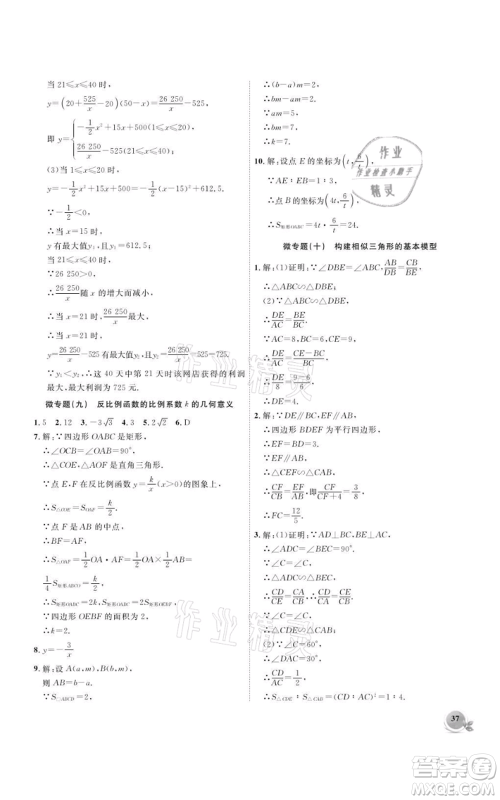 当 21≤x≤40 时,
y=(20+525/x-20)(60-x)=26 250/x-525.
即 y={-1/2x²+15x+500(1≤x≤20),
26 250/x-525(21≤x≤40);
(3)当 1≤x≤20 时,
y=-1/2x²+15x+500=-1/2(x-15)²+612.5.
∴当 x=15 时,
y 有最大值y₁,且 y₁=612.5.
当 21≤x≤40 时,
∵26 250>0,
∴26 250/x 随 x 的增大而减小.
∴当 x=21 时,26 250/x 最大.
∴当 x=21 时,
y=26 250/x-525 有最大值y₂,且 y₂=26 250/21-525=725.
∵y₁<y₂,∴这 40 天中第 21 天时该网店获得的利润
最大,最大利润为 725 元.
微专题(九) 反比例函数的比例系数 k 的几何意义
1. 5 2. 12 3. -3√3 4. 3 5. 2√2 6. D
7. 解:∵四边形 OABC 是矩形,
∴∠OCB=∠OAB=90°.
∴△COE,△AOF 是直角三角形.
∵点 E 在反比例函数y=k/x(x>0)的图象上,
∵点 F 是 AB 的中点,
∴BF=AF.
∴S△AOF=1/2OA·AF=1/2OA×1/2AB=
1/4S矩形ABCO=k/2.
∴S矩形ABCO=2k,S△COE=k/2.
∵四边形 OEBF 的面积为 2,
∴k=2.
8. y=-3/x
9. 解:设 A(a,m),B(b,m),
则 AB=b-a.
∵S▱ABCD=2,
∴(b-a)m=2,
∴bm-am=2.
∵am=5,
∴bm=7.
∴k=7.
10. 解:设点 E 的坐标为(t,6/t),
∵AE∶BE=1∶3,
∴点 B 的坐标为(4t,6/t).
∴S矩形OABC=4t·6/t=24.
作业
作业检查小助手
精灵
微专题(十) 构建相似三角形的基本模型
1. 解:(1)证明:∵∠DBE=∠ABC,AB/DB=CB/BE,
∴△ABC∽△DBE.
(2)∵△ABC∽△DBE,
∴DE/AC=BE/BC.
∴DE/AC=CE-BC/BC.
∵BC=6,AC=8,CE=9,
∴DE/8=9-6/6.
∴DE=4.
2. 解:∵四边形 ABCD 为平行四边形,
∴EF∥AB.
∴△CEF∽△ABF.
∴CF/AF=CE/AB=EF/BF,即CF/CF+4=3/8.
∴CF=12/5.
3. 解:(1)证明:∵AD⊥BC,BE⊥AC,
∴∠ADC=∠BEC=90°.
∵∠C=∠C,
∴△ACD∽△BCE.
∴CD/CE=CA/CB.∴CD/CA=CE/CB.
∵∠C=∠C,
∴△CDE∽△CAB.
(2)∵∠DAC=30°,∠ADC=90°,
∴∠C=60°.
∴CD/AC=1/2.
∴S△CDE∶S△CAB=(CD/AC)²=1∶4.
作业精灵
作业精灵
37